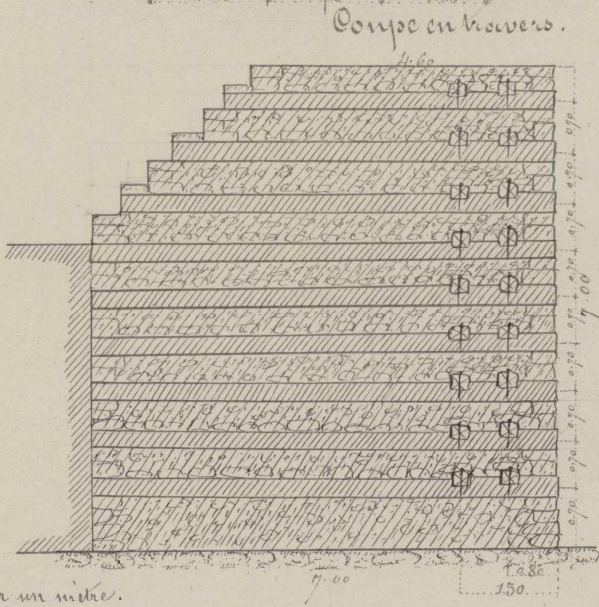 Coupe en travers.
4.60
0.70
0.70
0.70
0.70
0.70
0.70
0.70
0.70
0.70
0.70
7.00
7.00
0.80
1.50
un mètre.